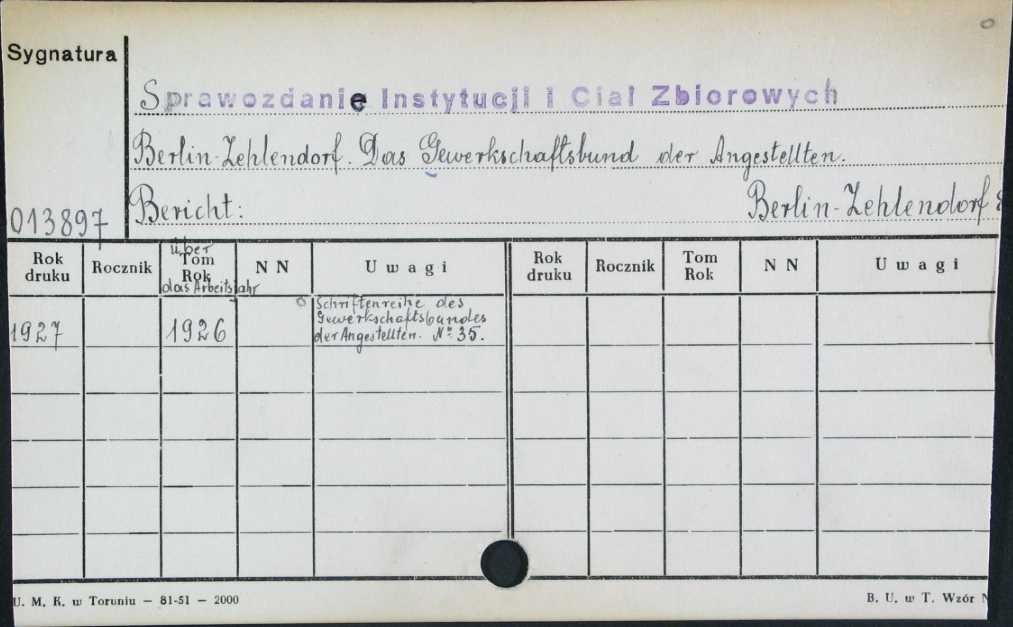 Sygnatura
Sprawozdanie Instytucji i Ciał Zbiorowych
Berlin-Zehlendorf. Das Gewerkschaftsbund der Angestellten.
013897
Bericht: Berlin-Zehlendorf
Rok druku Rocznik über Tom Rok das Arbeitsjahr N N Uwagi Rok druku Rocznik Tom Rok N N Uwagi
1927 1926 Schriftenreihe des
Gewerkschaftsbundes
der Angestellten. № 35.
U. M. K. w Toruniu — 81-51 — 2000 B. U. w T. Wzór